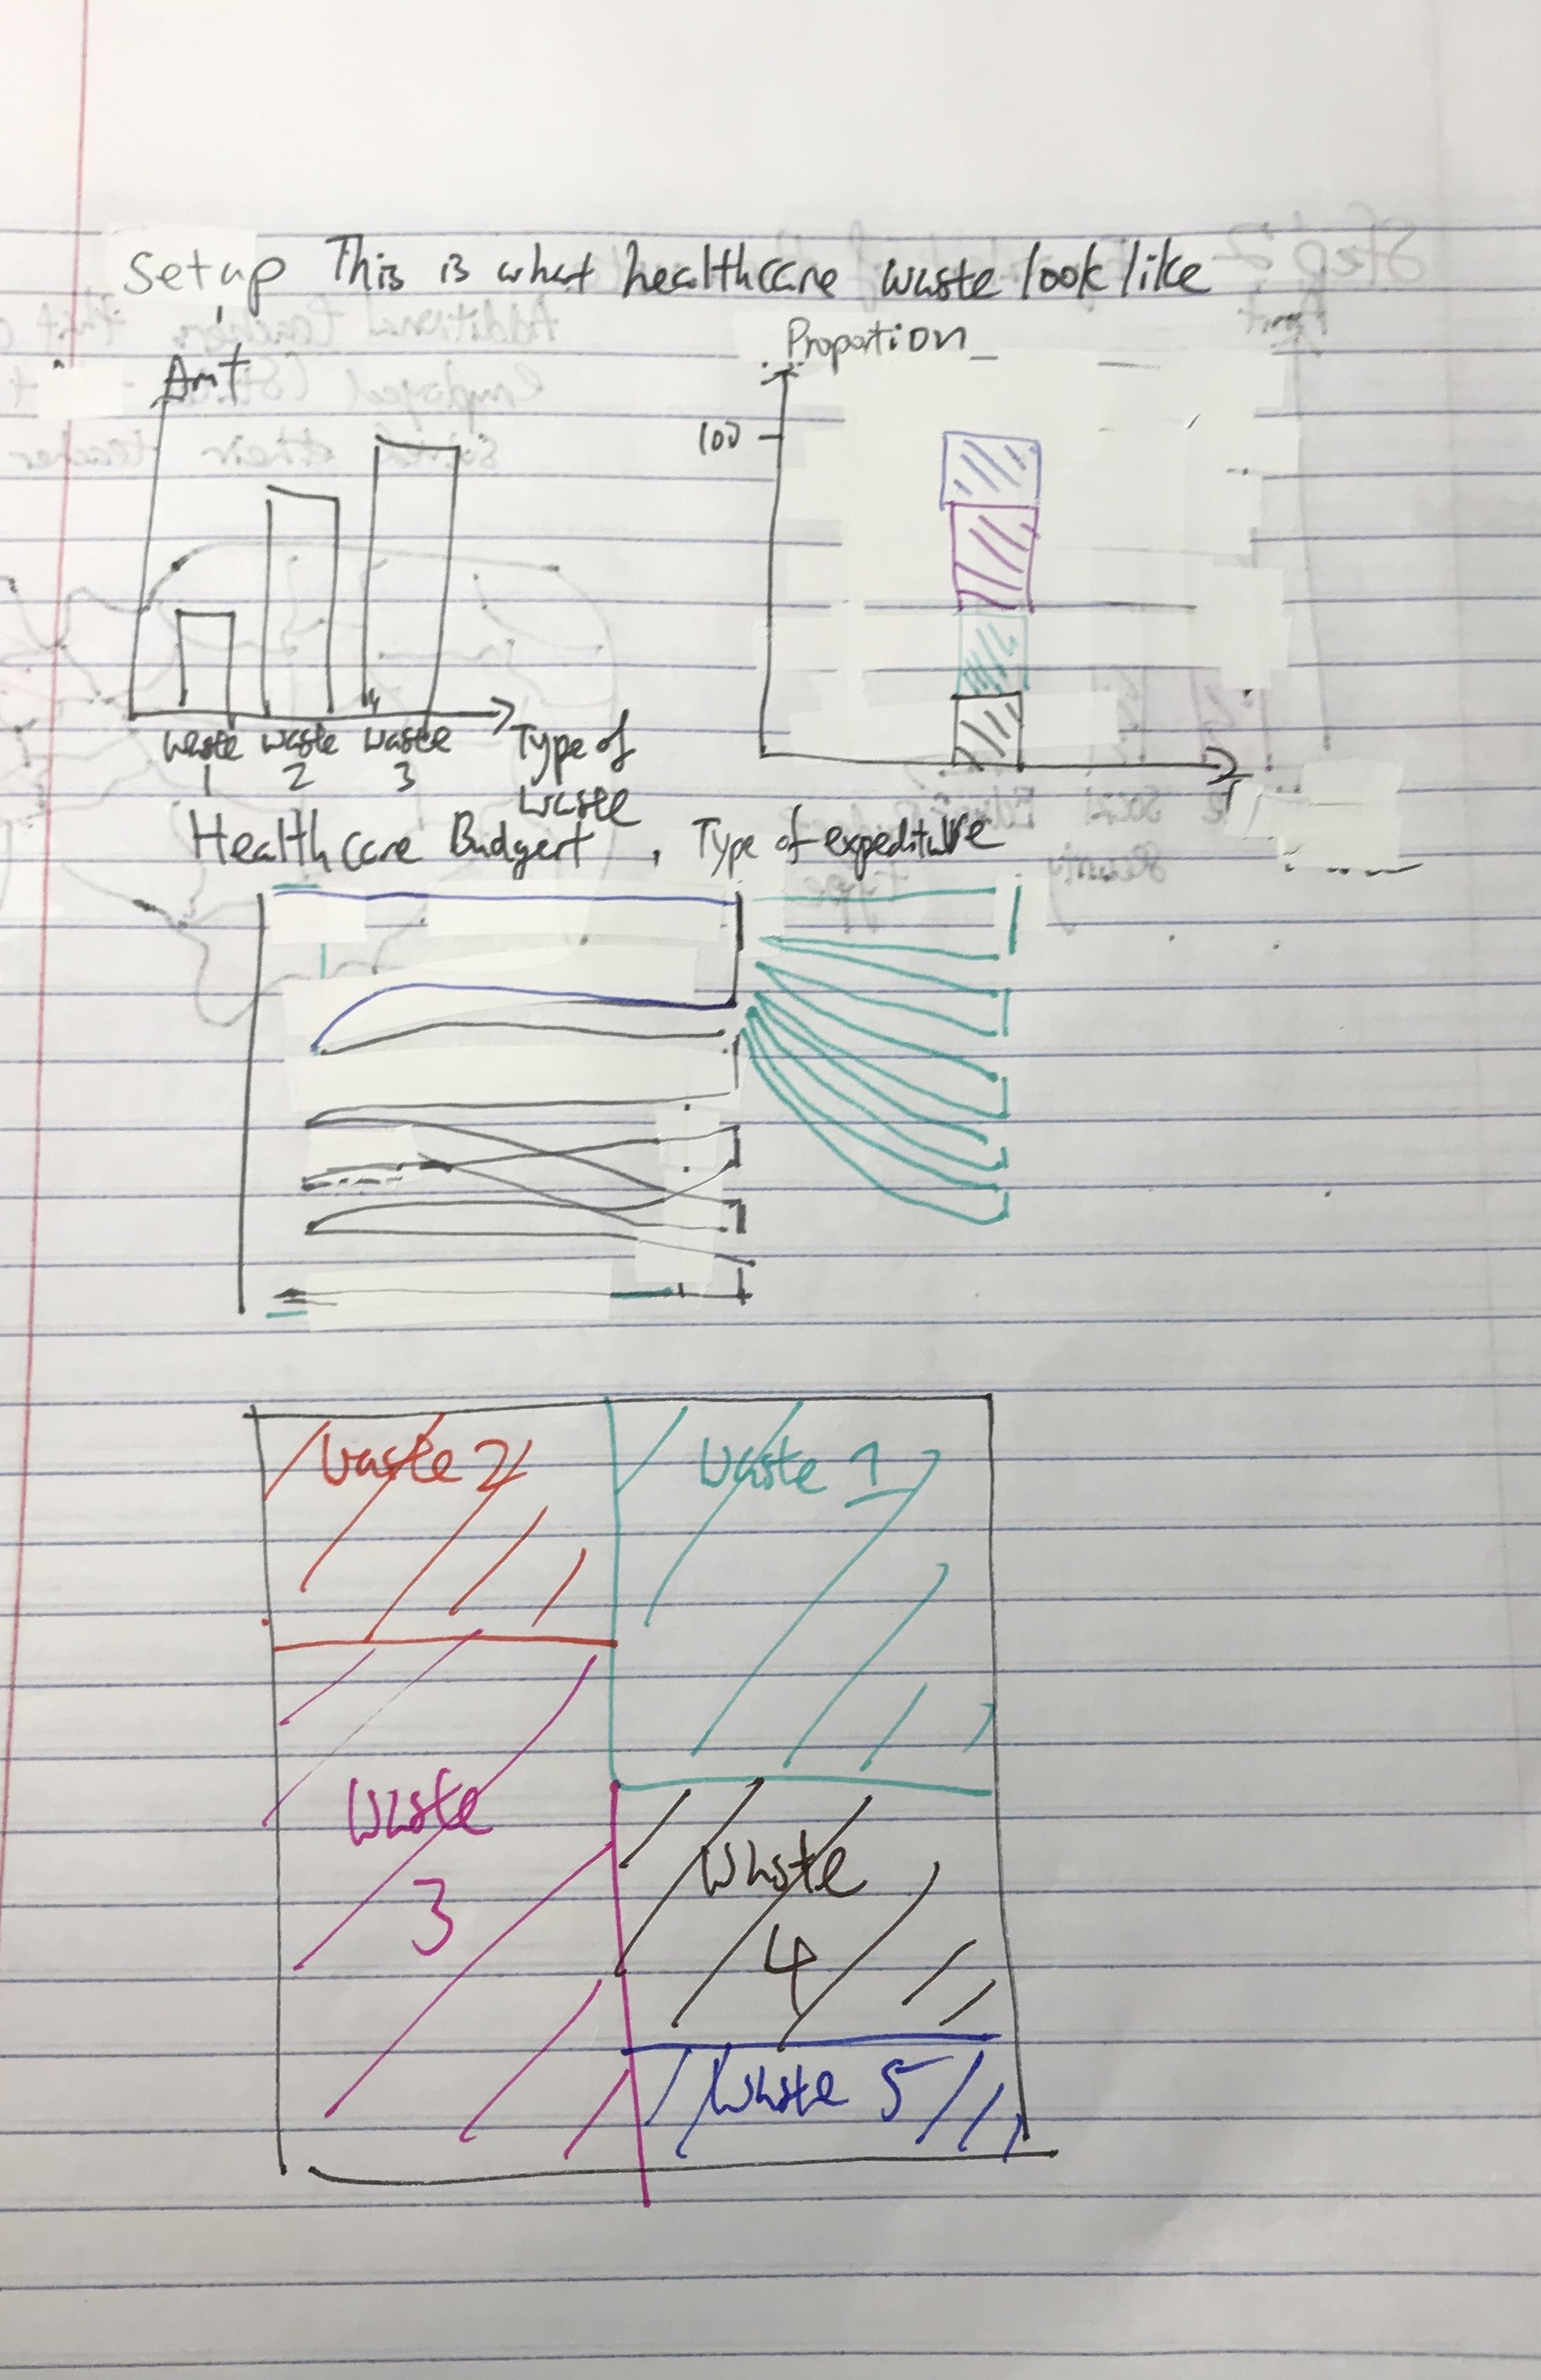 Setup This is what healthcare waste look like
Amt
Proportion
100
waste waste waste
1 2 3
Type of
waste
Healthcare Budgert , Type of expediture
waste 2
waste 1
waste
3
waste
4
waste 5